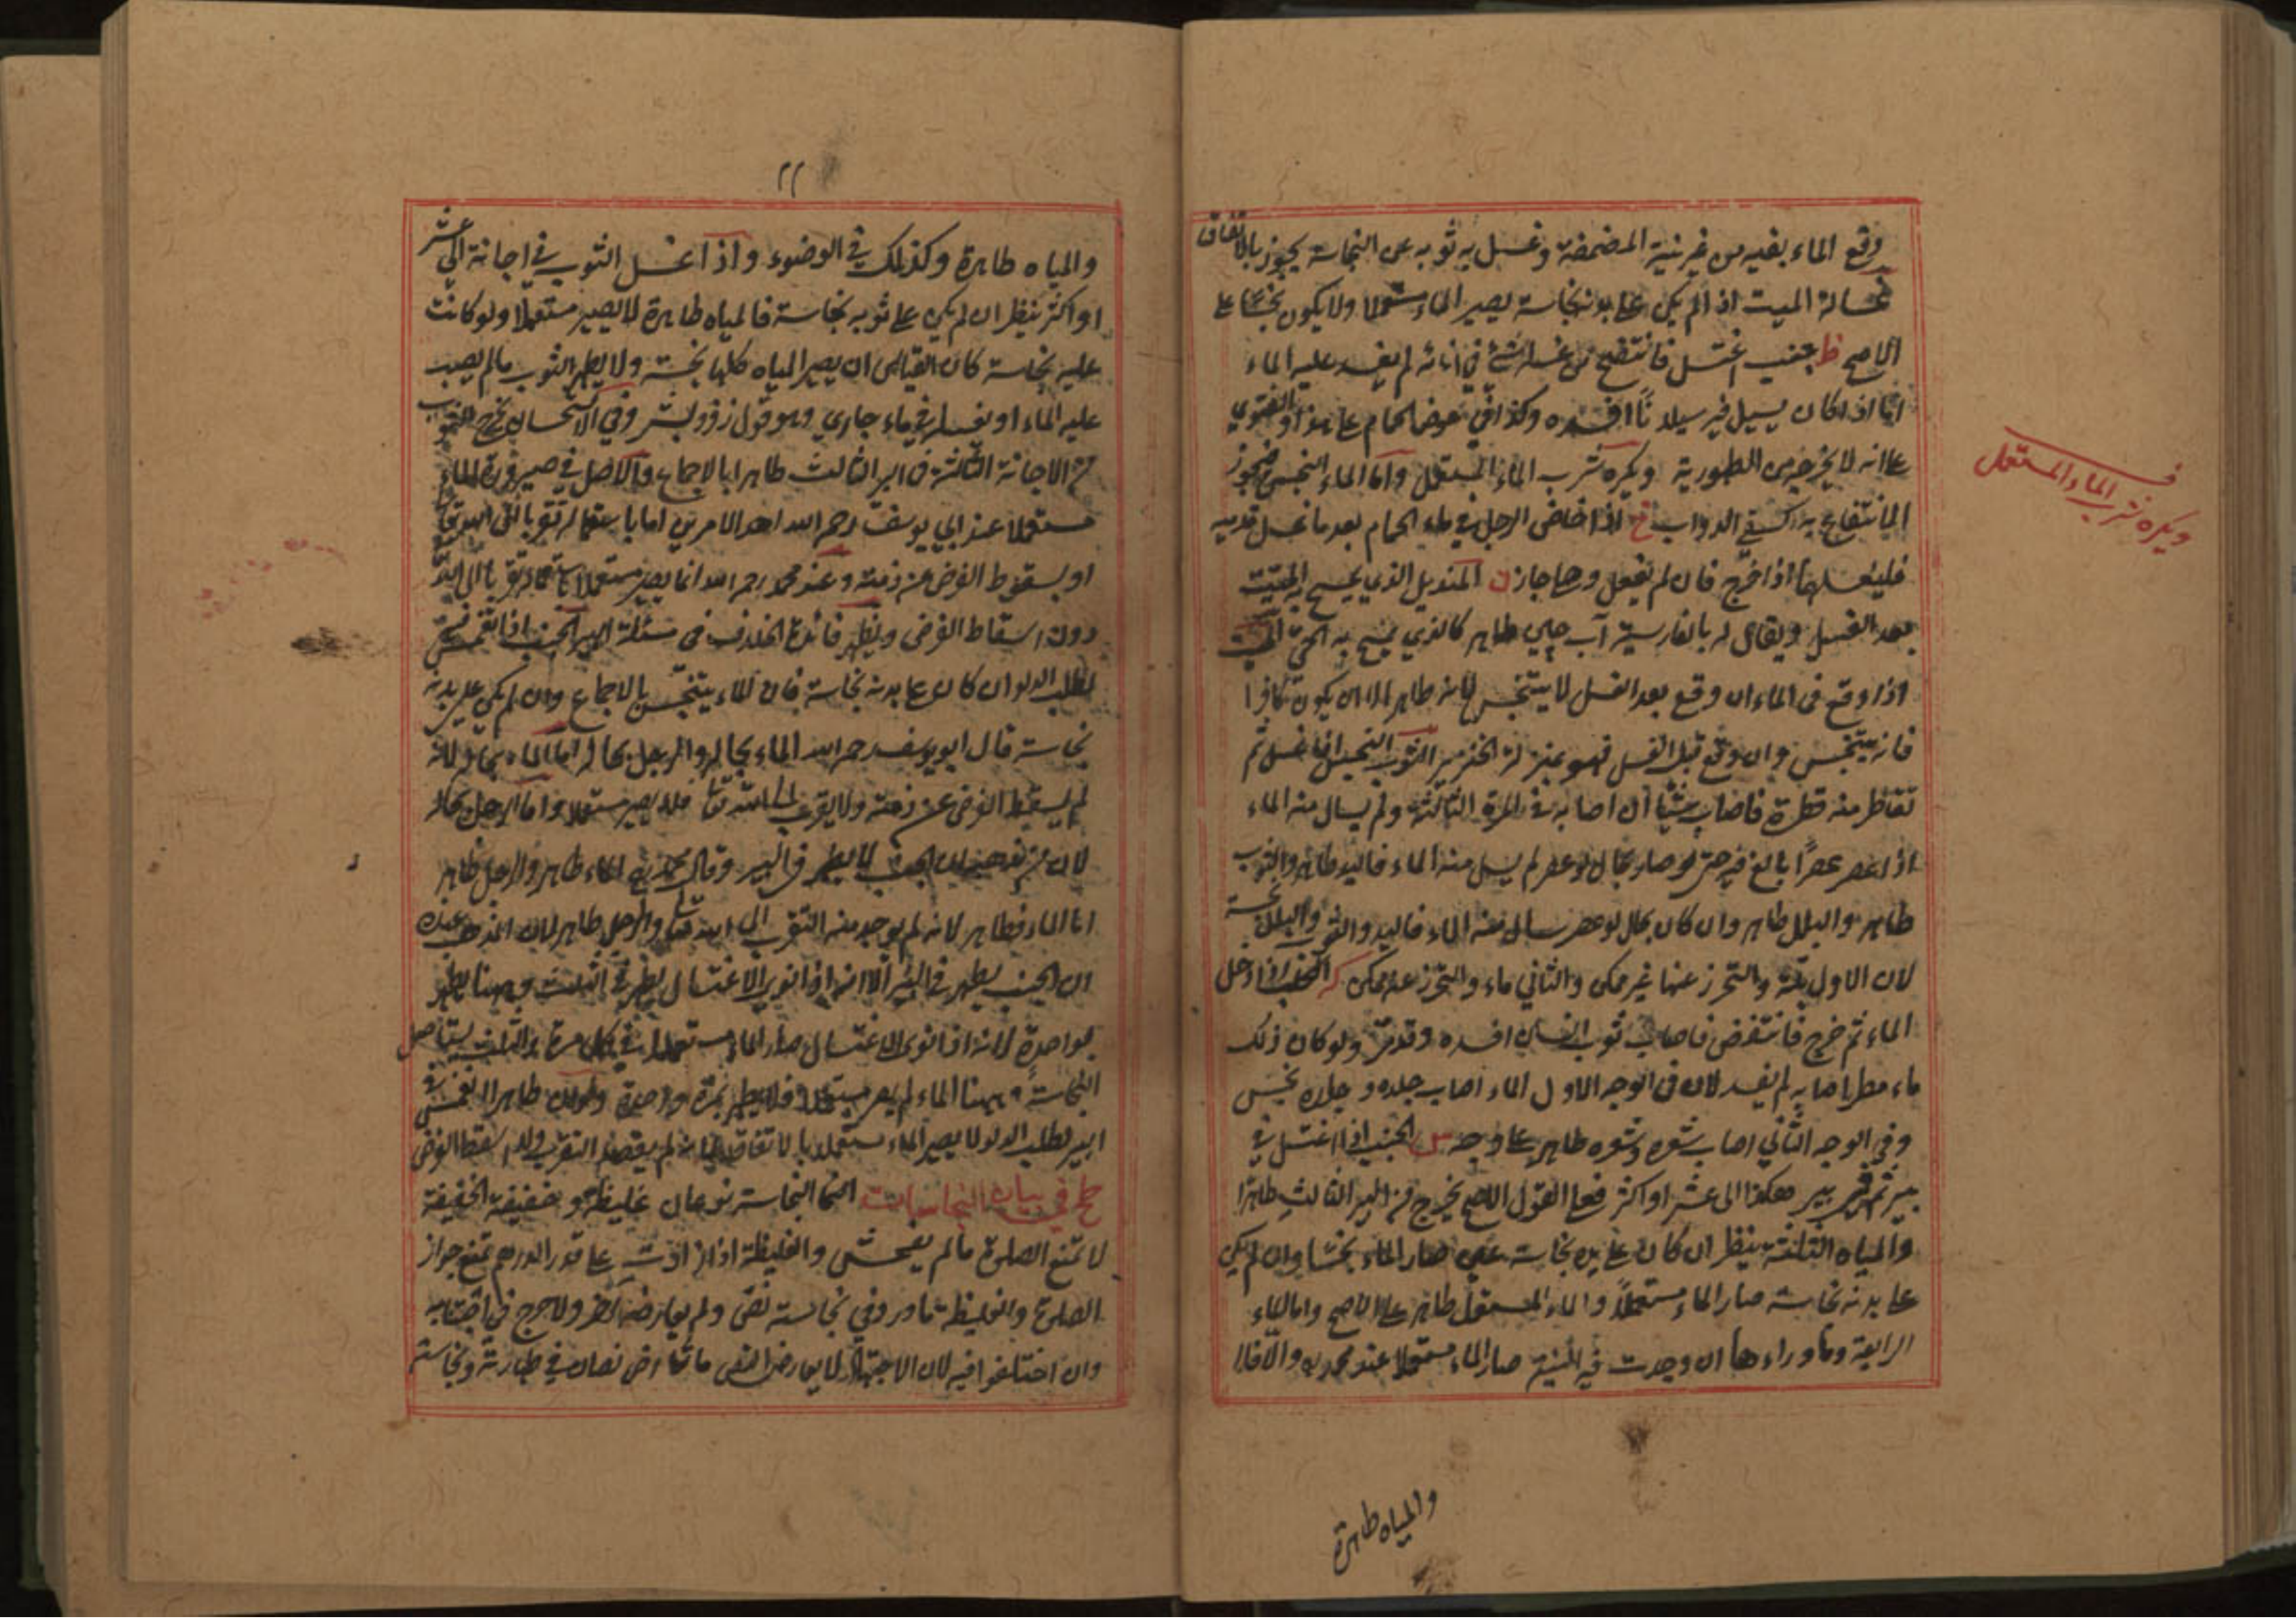 وقع الماء بفيه من غير نية المضمضة وغسل به ثوبه عن النجاسة يجوز بالاتفاق
غسالة الميت اذا لم يكن على بدنه نجاسة يصير الماء مستعملا ولا يكون نجسا على
الاصح ظ جنب اغتسل فانتضح من غسله شئ في انائه لم يفسد عليه الماء
اما اذا كان يسيل فيه سيلانا افسده وكذا في حوض الحمام على هذا والفتوى
على انه لا يخرج من الطهورية ويكره شرب الماء المستعمل واما الماء النجس فيجوز
الانتفاع به كسقي الدواب خ اذا خاض الرجل في ماء الحمام بعد ما غسل قدميه
فليغسلهما اذا خرج فان لم يفعل وصلى جاز ن المنديل الذي يمسح به الميت
بعد الغسل ويقال له بالفارسية آب چين طاهر كالذي يمسح به الحي الميت
اذا وقع في الماء ان وقع بعد الغسل لا يتنجس لانه طاهر الا ان يكون كافرا
فانه يتنجس وان وقع قبل الغسل فهو بمنزلة الخنزير الثوب النجس اذا غسل ثم
تقاطر منه قطرة فاصاب شيئا ان اصابه في المرة الثالثة ولم يسال منه الماء
اذا عصر عصرا بالغ فيه حتى لو صار بحال لو عصر لم يسل منه الماء فاليد طاهر والثوب
طاهر والبلل طاهر وان كان بحال لو عصر سال منه الماء فاليد والثوب والبلل نجسة
لان الاول بلة والتحرز عنها غير ممكن والثاني ماء والتحرز عنه ممكن الكلب اذا دخل
الماء ثم خرج فانتفض فاصاب ثوب انسان افسده وقد مر ولو كان ذلك
ماء مطر اصابه لم يفسد لان في الوجه الاول الماء اصاب جلده وجلده نجس
وفي الوجه الثاني اصاب شعره وشعره طاهر على وجه س الجنب اذا اغتسل في
بير ثم في بير هكذا الى عشر او اكثر فعلى القول الاصح يخرج من البير الثالث طاهرا
والمياه الثلثة ينظر ان كان على بدنه نجاسة عين صار الماء نجسا وان لم يكن
على بدنه نجاسة صار الماء مستعملا والماء المستعمل طاهر على الاصح واما الماء
الرابعة وما وراءها ان وجدت فيه النية صار الماء مستعملا عند محمد ره والا فلا
والمياه طاهرة
ويكره شرب الماء المستعمل
٢٢
والمياه طاهرة وكذلك في الوضوء واذا غسل الثوب في اجانة الى عشر
او اكثر ينظر ان لم يكن على ثوبه نجاسة فالمياه طاهرة لا يصير مستعملا ولو كانت
عليه نجاسة كان القياس ان يصير المياه كلها نجسة ولا يطهر الثوب ما لم يصب
عليه الماء او يغسل في ماء جاري وهو قول زفر وبشر وفي الاستحسان يخرج الثوب
من الاجانة الثالثة من البر الثالث طاهرا بالاجماع والاصل في صيرورة الماء
مستعملا عند ابي يوسف رحمه الله احد الامرين اما باستعماله تقربا الى الله تعالى
او بسقوط الفرض عن ذمته وعند محمد رحمه الله انما يصير مستعملا باستعماله تقربا الى الله
دون اسقاط الفرض ويظهر فائدة الخلاف في مسئلة البير الجنب اذا انغمس فيه
لطلب الدلو ان كان على بدنه نجاسة فان الماء يتنجس بالاجماع وان لم يكن على بدنه
نجاسة قال ابو يوسف رحمه الله الماء بحاله والرجل بحاله اما الماء بحاله لانه
لم يسقط الفرض عن ذمته ولا يقرب الى الله تعالى فلا يصير مستعملا واما الرجل بحاله
لان من مذهبه ان الجنب لا يطهر في البير وقال محمد ره الماء طاهر والرجل طاهر
اما الماء فطاهر لانه لم يوجد منه التقرب الى الله تعالى والرجل طاهر لان المذهب عنده
ان الجنب يطهر في البير الا انه اذا نوى الاغتسال يطهر في الثلث وههنا يطهر
بواحدة لانه اذا نوى الاغتسال صار الماء مستعملا في كل مرة والثلث يستأصل
النجاسة وههنا الماء لم يصر مستعملا فلا يطهر بمرة واحدة ولو كان طاهرا انغمس في
البير لطلب الدلو لا يصير الماء مستعملا بالاتفاق لانه لم يقصد التقرب ولا اسقط الفرض
في بيان النجاسات النجاسة نوعان غليظة وخفيفة الخفيفة
لا تمنع الصلوة ما لم يفحش والغليظة اذا زادت على قدر الدرهم تمنع جواز
الصلوة والغليظة ما ورد في نجاسته نص ولم يعارضه آخر ولا حرج في اجتنابه
وان اختلفوا فيه لان الاجتهاد لا يعارض النص ما تعارض نصان في طهارته ونجاسته